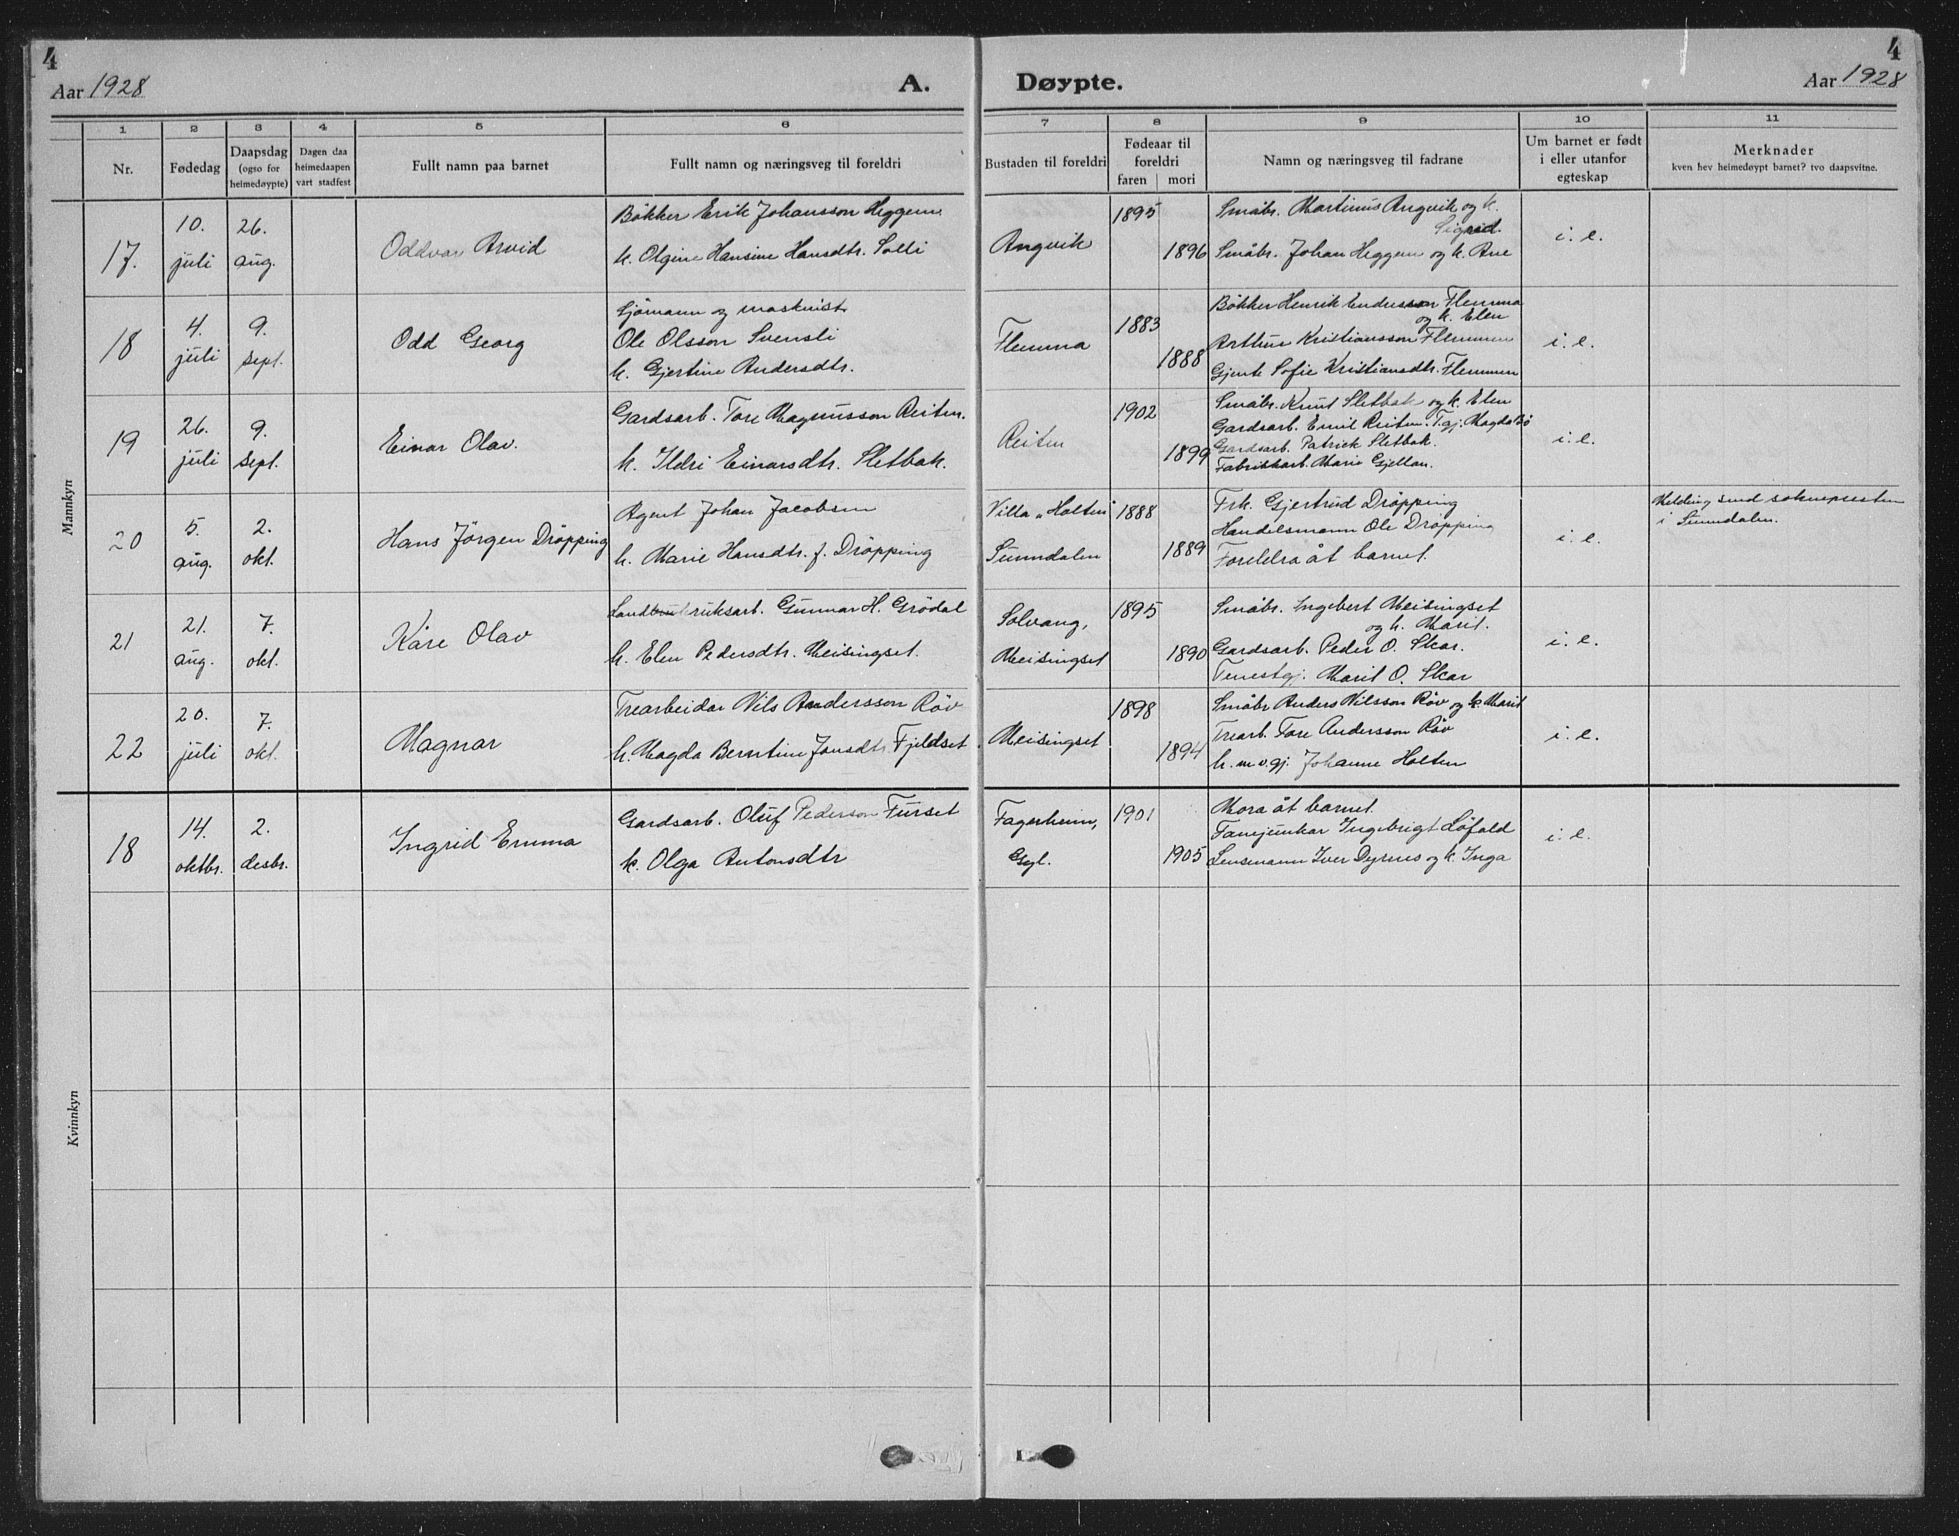 4
Aar 1928
A.
Døypte.
4
Aar 1928
1 2 3 4 5 6 7 8 9 10 11
Nr.
Fødedag
Daapsdag
(ogso for
heimedøypte)
Dagen daa
heimedaapen
vart stadfest
Fullt namn paa barnet
Fullt namn og næringsveg til foreldri
Bustaden til foreldri
Fødeaar til
foreldri
faren mori
Namn og næringsveg til fadrane
Um barnet er født
i eller utanfor
egteskap
Merknader
kven hev heimedøypt barnet? tvo daapsvitne.
Mannkyn
17.
10.
juli
26.
aug.
Oddvar Arvid
Bökker Erik Johansson Heggem.
k. Olgine Hansine Hansdtr. Solli
Angvik
1895
1896
Småbr. Martinus Angvik og k.
Sigrid.
Småbr. Johan Heggem og k. Ane
i. e.
18
4.
juli
9.
sept.
Odd Georg
Sjömann og maskinist
Ole Olsson Svensli
k. Gjertine Andersdtr.
Flemma
1883
1888
Bökker Henrik Endersson Flemma
og k. Elen
Arthur Kristiansson Flemmen
Gjente Sofie Kristiansdtr. Flemmen
i. e.
19
26.
juli
9.
sept.
Einar Olav.
Gardsarb. Tore Magnusson Reiten.
k. Ildri Einarsdtr. Sletbak.
Reiten
1902
1899
Småbr. Knut Sletbak og k. Elen
Gardsarb. Emil Reiten. T.gj. Magda Bö
Gardsarb. Patrick Sletbak.
Fabrikkarb. Marie Gjeldan.
i. e.
20
5.
aug.
2.
okt.
Hans Jörgen Dröpping
Agent Johan Jacobsen
k. Marie Hansdtr. f. Dröpping
Villa „Holten"
Sunndalen
1888
1889
Frk. Gjertrud Dröpping
Handelsmann Ole Dröpping
Foreldra åt barnet.
i. e.
Melding send soknepresten
i Sunndalen.
21
21.
aug.
7.
okt.
Kåre Olav
Landbruksarb. Gunnar H. Grödal
k. Elen Pedersdtr. Meisingset.
Solvang,
Meisingset
1895
1890
Småbr. Ingebert Meisingset
og k. Marit.
Gardsarb. Peder O. Skar.
Tenestgj. Marit O. Skar
i. e.
22
20.
juli
7.
okt.
Magnar
Trearbeidar Nils Andersson Röv
k. Magda Berntine Jonsdtr. Fjeldset.
Meisingset
1898
1894
Småbr Anders Nilsson Röv og k. Marit
Trearb. Tore Andersson Röv
h.m.v.gj. Johanne Holten
i. e.
Kvinnkyn
18
14.
oktbr.
2.
desbr.
Ingrid Emma
Gardsarb. Oluf Pederson Furset
k. Olga Antonsdtr
Fagerheim,
Gyl.
1901
1905
Mora åt barnet.
Fanejunkar Ingebrigt Löfald
Lensmann Iver Dyrnes og k. Inga
i. e.